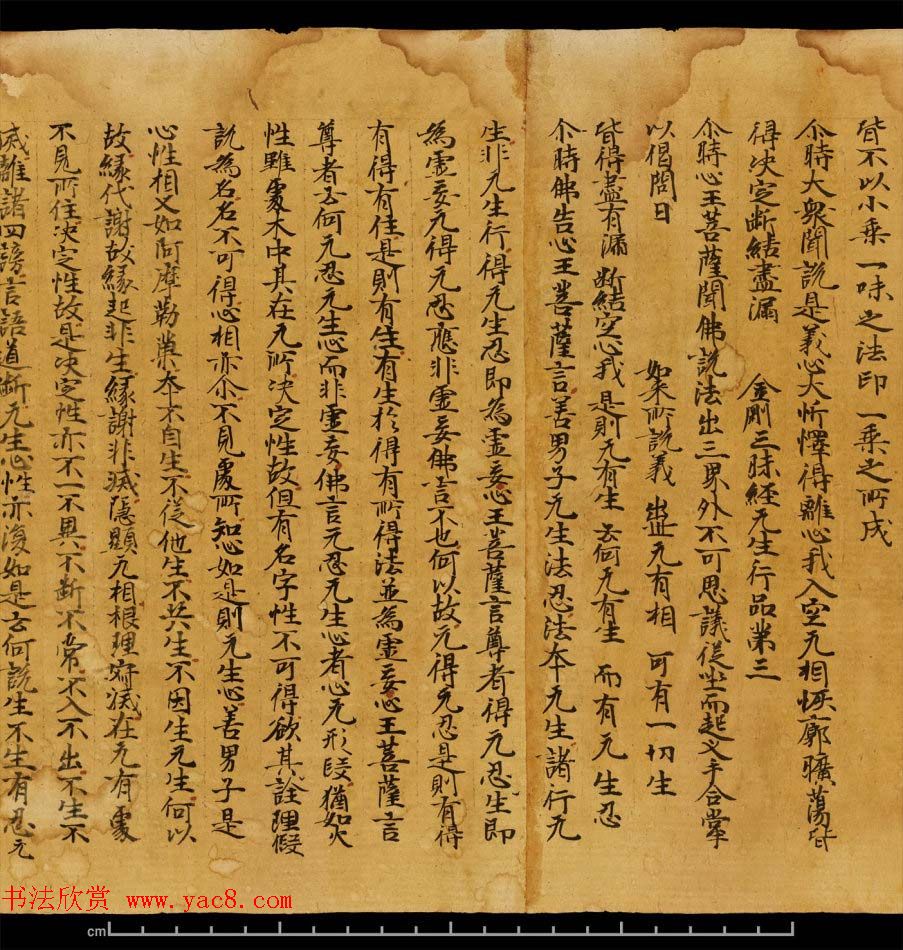 皆不以小乗一味之法印一乗之所成
尒時大衆聞說是義心大忻懌得離心我入空无相恢廓曠蕩皆
得决定断結盡漏　金剛三昧経无生行品第三
尒時心王菩薩聞佛說法出三界外不可思議従坐而起叉手合掌
以偈問曰　如来所說義　出世无有相　可有一切生
皆得盡有漏　断結空心我　是則无有生　云何无有生　而有无生忍
尒時佛告心王菩薩言善男子无生法忍法本无生諸行无
生非无生行得无生忍即為虚妄心王菩薩言尊者得无忍生即
為虚妄无得无忍應非虚妄佛言不也何以故无得无忍是則有得
有得有住是則有生有生於得有所得法並為虚妄心王菩薩言
尊者云何无忍无生心而非虚妄佛言无忍无生心者心无形段猶如火
性雖處木中其在无所决定性故但有名字性不可得欲其詮理假
說為名名不可得心相亦尒不見處所知心如是則无生心善男子是
心性相又如阿摩勒菓本不自生不従他生不共生不因生无生何以
故縁代謝故縁起非生縁謝非滅隠顯无相根理寂滅在无有處
不見所住决定性故是决定性亦不一不異不断不常不入不出不生不
滅離諸四謗言語道断无生心性亦復如是云何說生不生有忍无
书法欣赏 www.yac8.com
cm